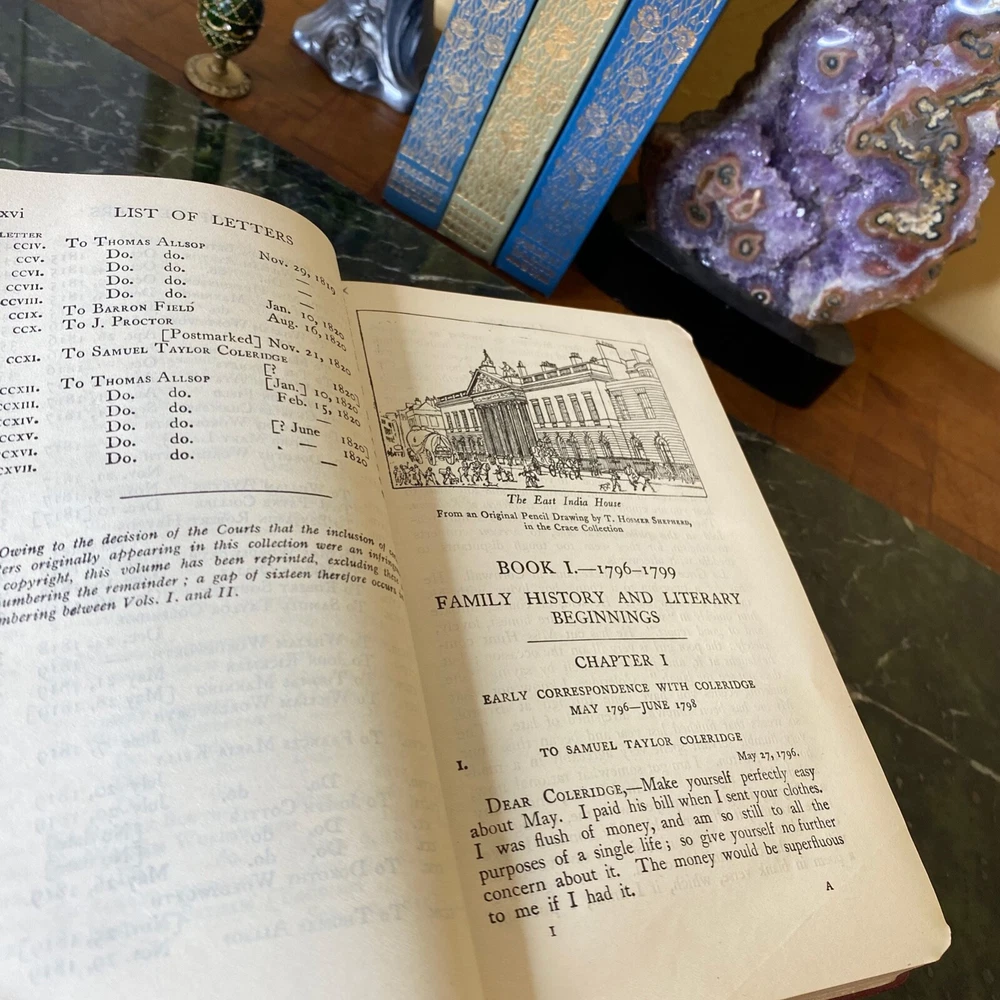 xvi LIST OF LETTERS
LETTER
CCIV. To Thomas Allsop Nov. 29, 1819
CCV. Do. do. —
CCVI. Do. do. —
CCVII. Do. do. —
CCVIII. To Barron Field Jan. 10, 1820
CCIX. To J. Proctor Aug. 16, 1820
CCX. [Postmarked] Nov. 21, 1820
CCXI. To Samuel Taylor Coleridge
[? 1820]
CCXII. To Thomas Allsop [Jan.] 10, 1820
CCXIII. Do. do. Feb. 15, 1820
CCXIV. Do. do. —
CCXV. Do. do. [? June 1820]
CCXVI. Do. do. —
CCXVII. Do. do. — 1820
Owing to the decision of the Courts that the inclusion of
originally appearing in this collection were an
copyright, this volume has been reprinted, excluding these
the remainder; a gap of sixteen therefore occurs
between Vols. I. and II.
The East India House
From an Original Pencil Drawing by T. Hosmer Shepherd,
in the Crace Collection
BOOK I.—1796–1799
FAMILY HISTORY AND LITERARY
BEGINNINGS
CHAPTER I
EARLY CORRESPONDENCE WITH COLERIDGE
MAY 1796—JUNE 1798
I. TO SAMUEL TAYLOR COLERIDGE
May 27, 1796.
Dear Coleridge,—Make yourself perfectly easy
about May. I paid his bill when I sent your clothes.
I was flush of money, and am so still to all the
purposes of a single life; so give yourself no further
concern about it. The money would be superfluous
to me if I had it.
A
I